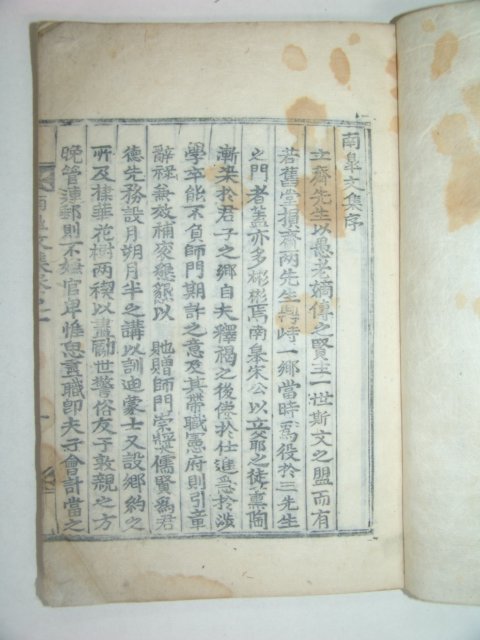 南皐文集序
立齋先生以愚老嫡傳之賢主一世斯文之盟而有
若舊堂損齋兩先生專峙一鄉當時爲役於三先生
之門者蓋亦多彬彬焉南皐宋公以立爺之徒薰陶
漸染於君子之鄉自夫釋褐之後 於仕進 於
學卒能不負師門期許之意及其帶職憲府則引章
辭祿無效補袞懇懇以 貤贈師門崇奬儒賢爲君
德先務設月朔月半之講以訓迪蒙士又設鄉約之
所及 華花樹兩禊以 勵世警俗友于敦親之方
晚 郵則不 官卑惟怠 職卽夫子會計當之
南皐文集